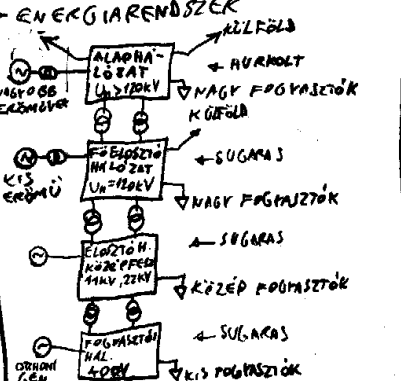 ← ENERGIARENDSZER
KÜLFÖLD
ALAPHÁ-
LÓZAT
Un>120kV
← HURKOLT
NAGYOBB
ERŐMŰVEK
NAGY FOGYASZTÓK
KÜLFÖLD
FŐELOSZTÓ
HÁLÓZAT
UN=120kV
← SUGARAS
KIS
ERŐMŰ
NAGY FOGYASZTÓK
ELOSZTÓ H.
KÖZÉPFESZ
11KV, 22KV
← SUGARAS
KÖZÉP FOGYASZTÓK
FOGYASZTÓI
HÁL.
400V
← SUGARAS
OTTHONI
GEN.
KIS FOGYASZTÓK